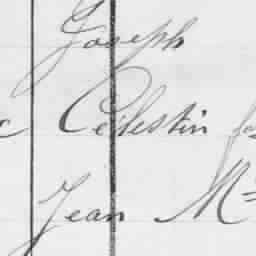 Joseph
Célestin
Jean M